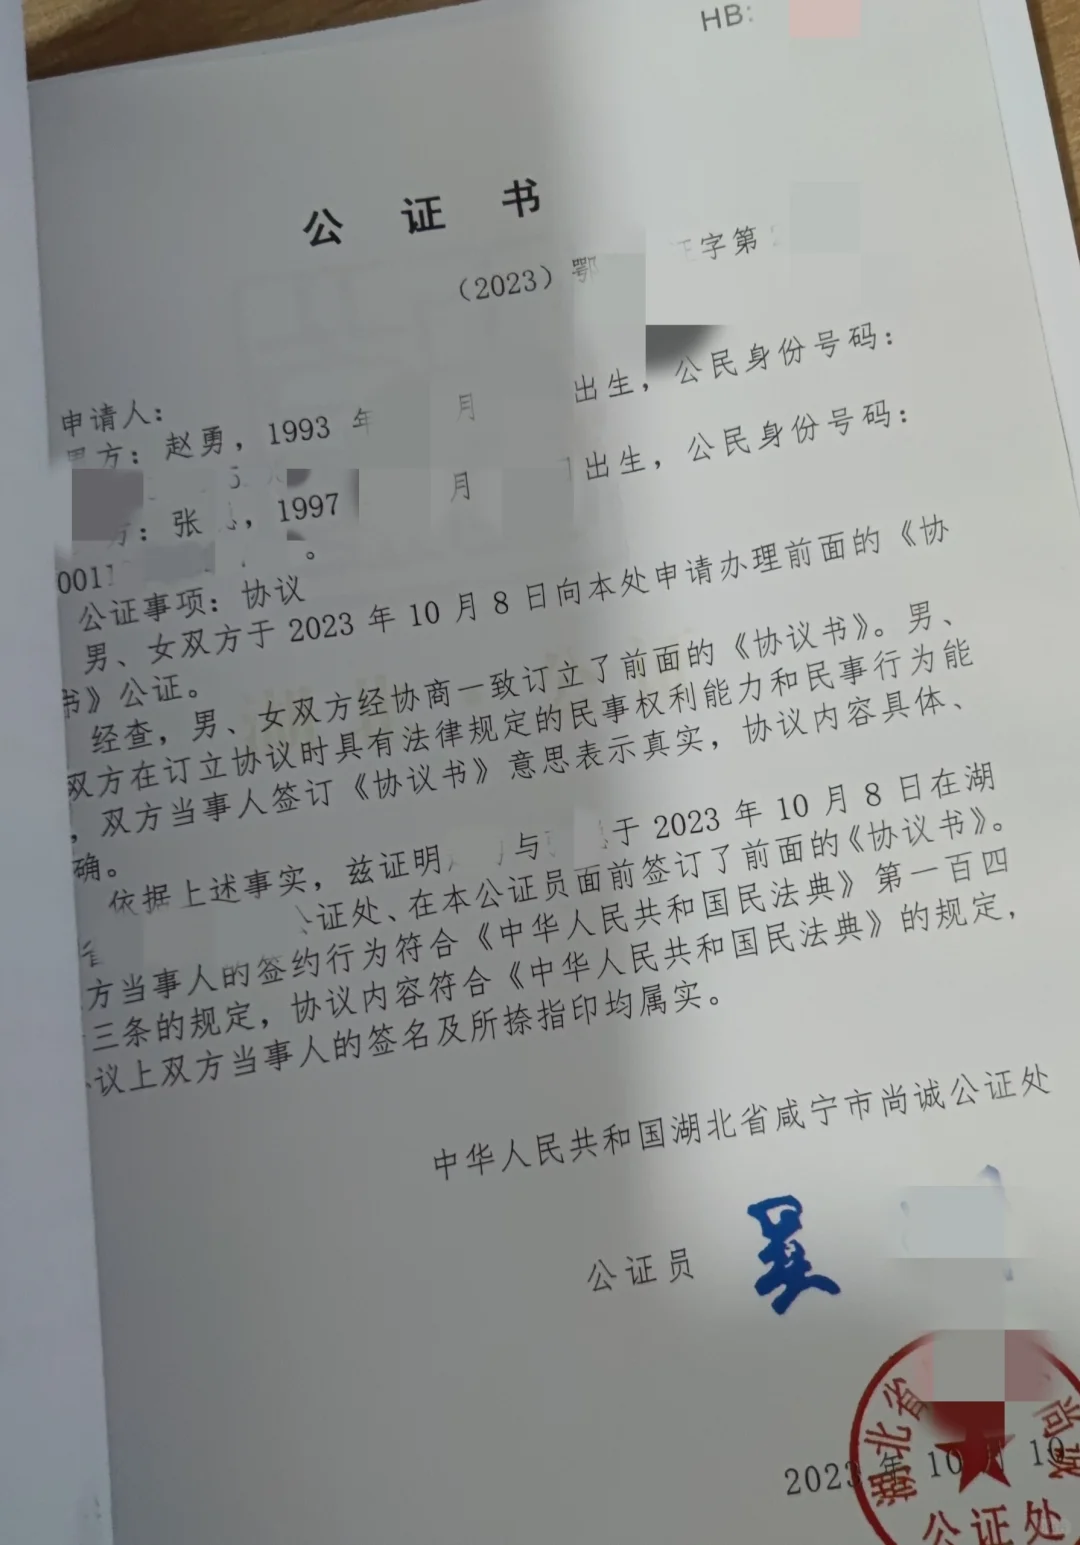 HB:
公 证 书
（2023）鄂 证字第
申请人：
男方：赵勇，1993 年 月 出生，公民身份号码：
方：张 ，1997 月 出生，公民身份号码：
0011 。
公证事项：协议
男、女双方于 2023 年 10 月 8 日向本处申请办理前面的《协
书》公证。
经查，男、女双方经协商一致订立了前面的《协议书》。男、
双方在订立协议时具有法律规定的民事权利能力和民事行为能
，双方当事人签订《协议书》意思表示真实，协议内容具体、
确。
依据上述事实，兹证明 与 于 2023 年 10 月 8 日在湖
省 公证处、在本公证员面前签订了前面的《协议书》。
方当事人的签约行为符合《中华人民共和国民法典》第一百四
三条的规定，协议内容符合《中华人民共和国民法典》的规定，
议上双方当事人的签名及所捺指印均属实。
中华人民共和国湖北省咸宁市尚诚公证处
公证员 吴
2023 年 10 月 10
湖北省 尚诚
公证处